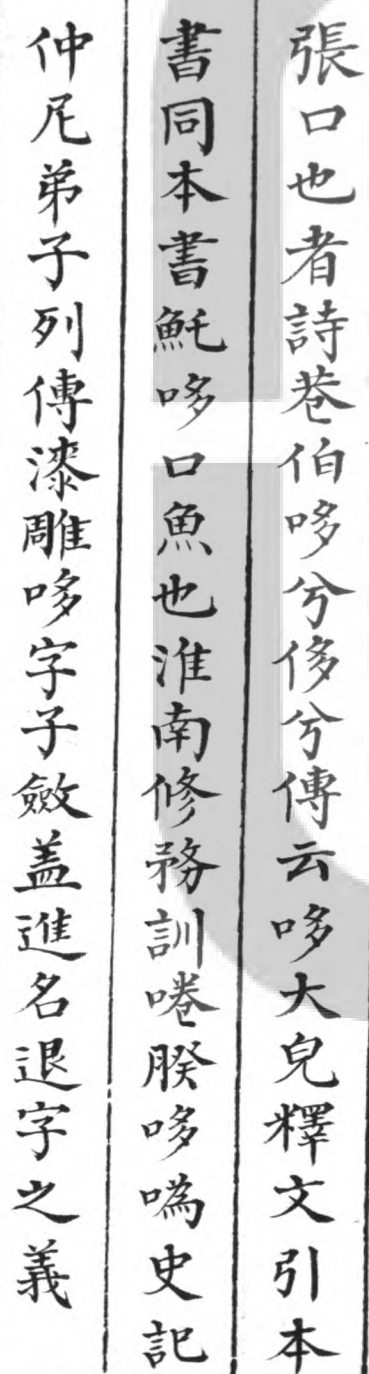 張口也者詩巷伯哆兮侈兮傳云哆大皃釋文引本
書同本書魠哆口魚也淮南修務訓啳䐆哆噅史記
仲尼弟子列傳漆雕哆字子斂盖進名退字之義